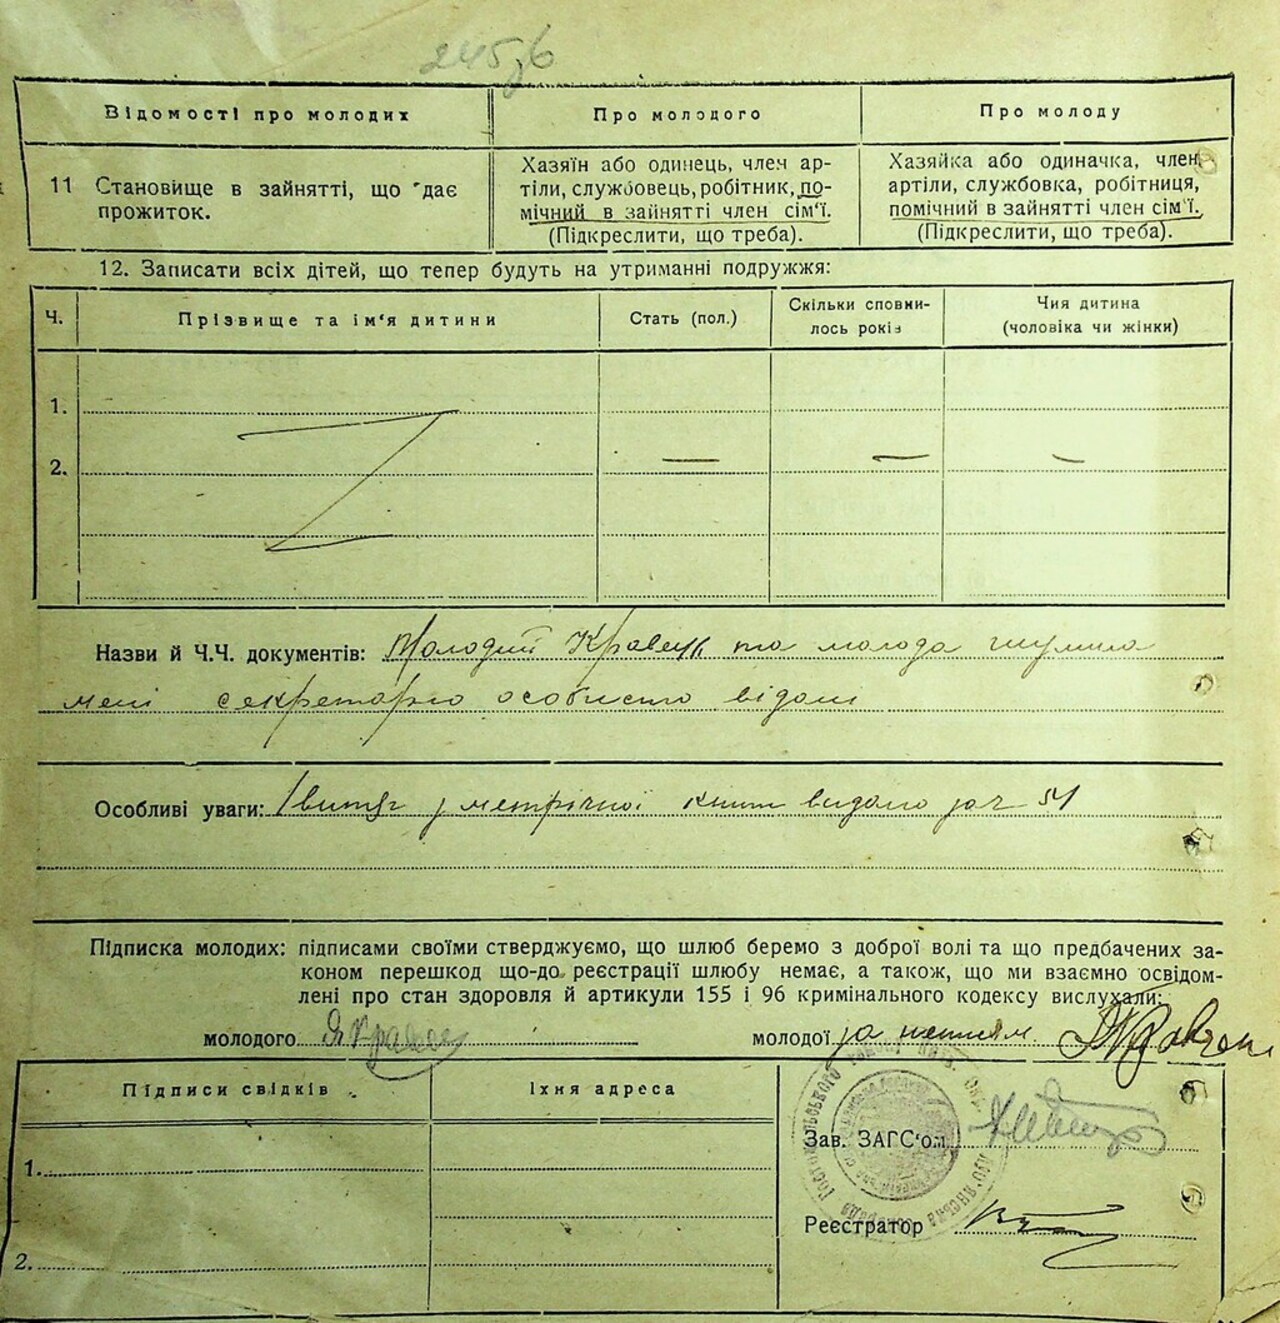 245
Відомості про молодих
Про молодого
Про молоду
11 Становище в зайнятті, що дає
прожиток.
Хазяїн або одинець, член ар-
тіли, службовець, робітник, по-
мічний в зайнятті член сім'ї.
(Підкреслити, що треба).
Хазяйка або одиначка, член
артіли, службовка, робітниця,
помічний в зайнятті член сім'ї.
(Підкреслити, що треба).
12. Записати всіх дітей, що тепер будуть на утриманні подружжя:
Ч.
Прізвище та ім'я дитини
Стать (пол.)
Скільки сповни-
лось років
Чия дитина
(чоловіка чи жінки)
1.
2.
Назви й Ч.Ч. документів: Молодий Кравець та молода
мені секретарю особисто відомі
Особливі уваги: витяг з метричної книги видано за ч 51
Підписка молодих: підписами своїми стверджуємо, що шлюб беремо з доброї волі та що предбачених за-
коном перешкод що-до реєстрації шлюбу немає, а також, що ми взаємно освідом-
лені про стан здоровля й артикули 155 і 96 кримінального кодексу вислухали:
молодого
молодої за
Підписи свідків
Їхня адреса
1.
2.
Зав. ЗАГС'ом
Реєстратор